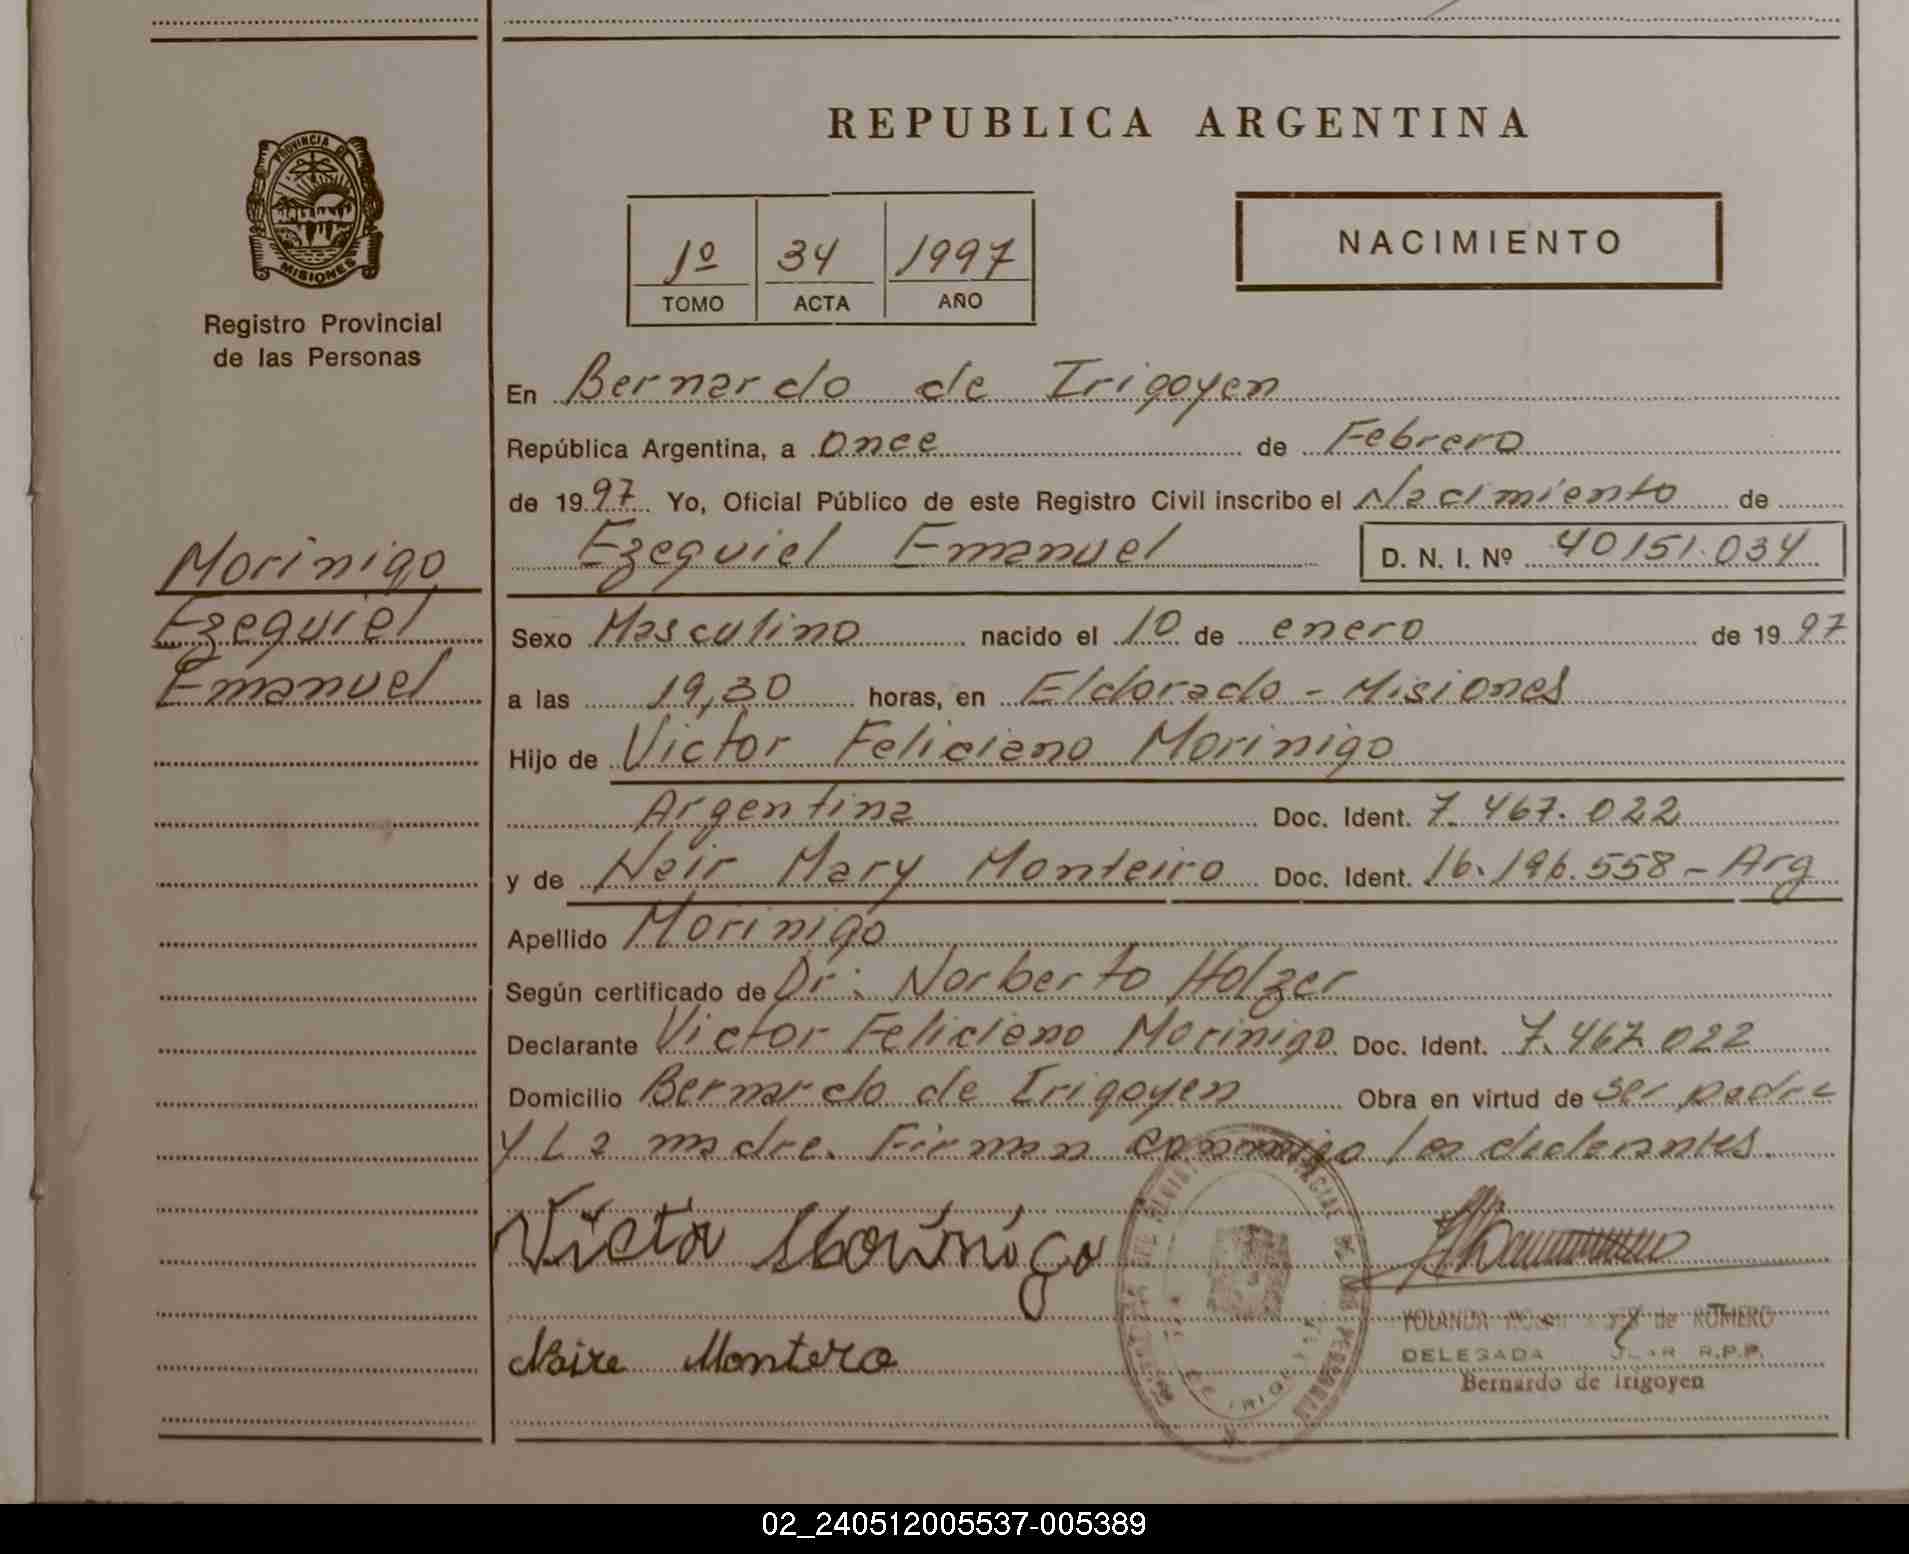 REPUBLICA ARGENTINA
PROVINCIA DE
MISIONES
Registro Provincial
de las Personas
1º 34 1997
TOMO ACTA AÑO
NACIMIENTO
En Bernardo de Irigoyen
República Argentina, a once de Febrero
de 1997 Yo, Oficial Público de este Registro Civil inscribo el Nacimiento de
Ezequiel Emanuel D. N. I. Nº 40151.034
Morinigo
Ezequiel
Emanuel
Sexo Masculino nacido el 10 de enero de 1997
a las 19,30 horas, en Eldorado - Misiones
Hijo de Victor Feliciano Morinigo
Argentina Doc. Ident. 7.467.022
y de Neir Mary Monteiro Doc. Ident. 16.196.558 - Arg
Apellido Morinigo
Según certificado de Dr: Norberto Holzer
Declarante Victor Feliciano Morinigo Doc. Ident. 7.467.022
Domicilio Bernardo de Irigoyen Obra en virtud de ser padre
y La madre. Firman conmigo los declarantes.
Victor Morinigo
YOLANDA de ROMERO
Montero
DELEGADA R.P.P.
Bernardo de Irigoyen
02_240512005537-005389